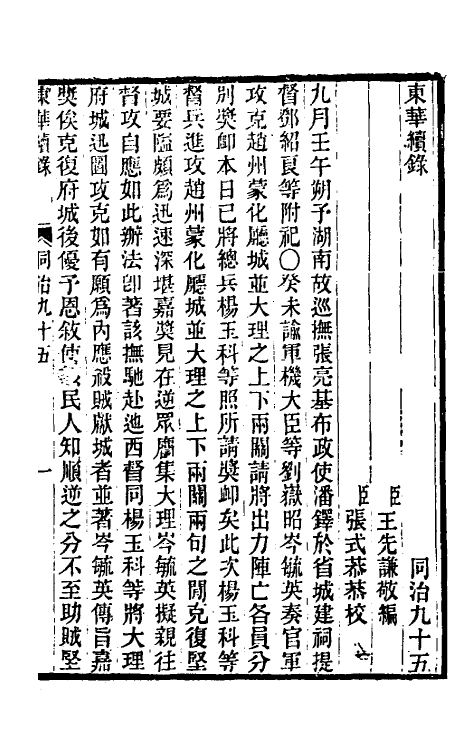 東華續錄　同治九十五
臣王先謙敬編
臣張式恭恭校
九月壬午朔予湖南故巡撫張亮基布政使潘鐸於省城建祠提
督鄧紹良等附祀〇癸未諭軍機大臣等劉嶽昭岑毓英奏官軍
攻克趙州蒙化廳城並大理之上下兩關請將出力陣亡各員分
別獎卹本日已將總兵楊玉科等照所請獎卹矣此次楊玉科等
督兵進攻趙州蒙化廳城並大理之上下兩關兩旬之閒克復堅
城要隘頗爲迅速深堪嘉獎見在逆眾麕集大理岑毓英擬親往
督攻自應如此辦法卽著該撫馳赴迤西督同楊玉科等將大理
府城迅圖攻克如有願爲內應殺賊獻城者並著岑毓英傳旨嘉
獎俟克復府城後優予恩敘使民人知順逆之分不至助賊堅
東華續錄　同治九十五　一